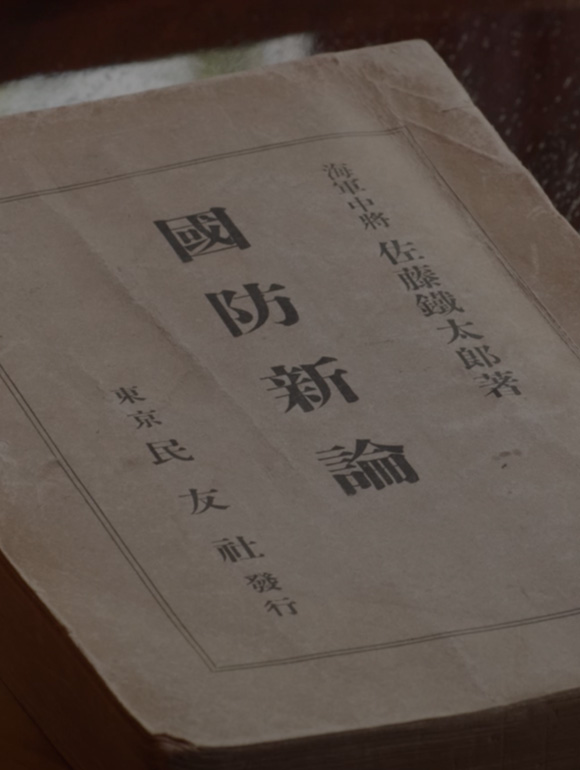 海軍中將 佐藤鐵太郎著
國防新論
東京 民友社 發行